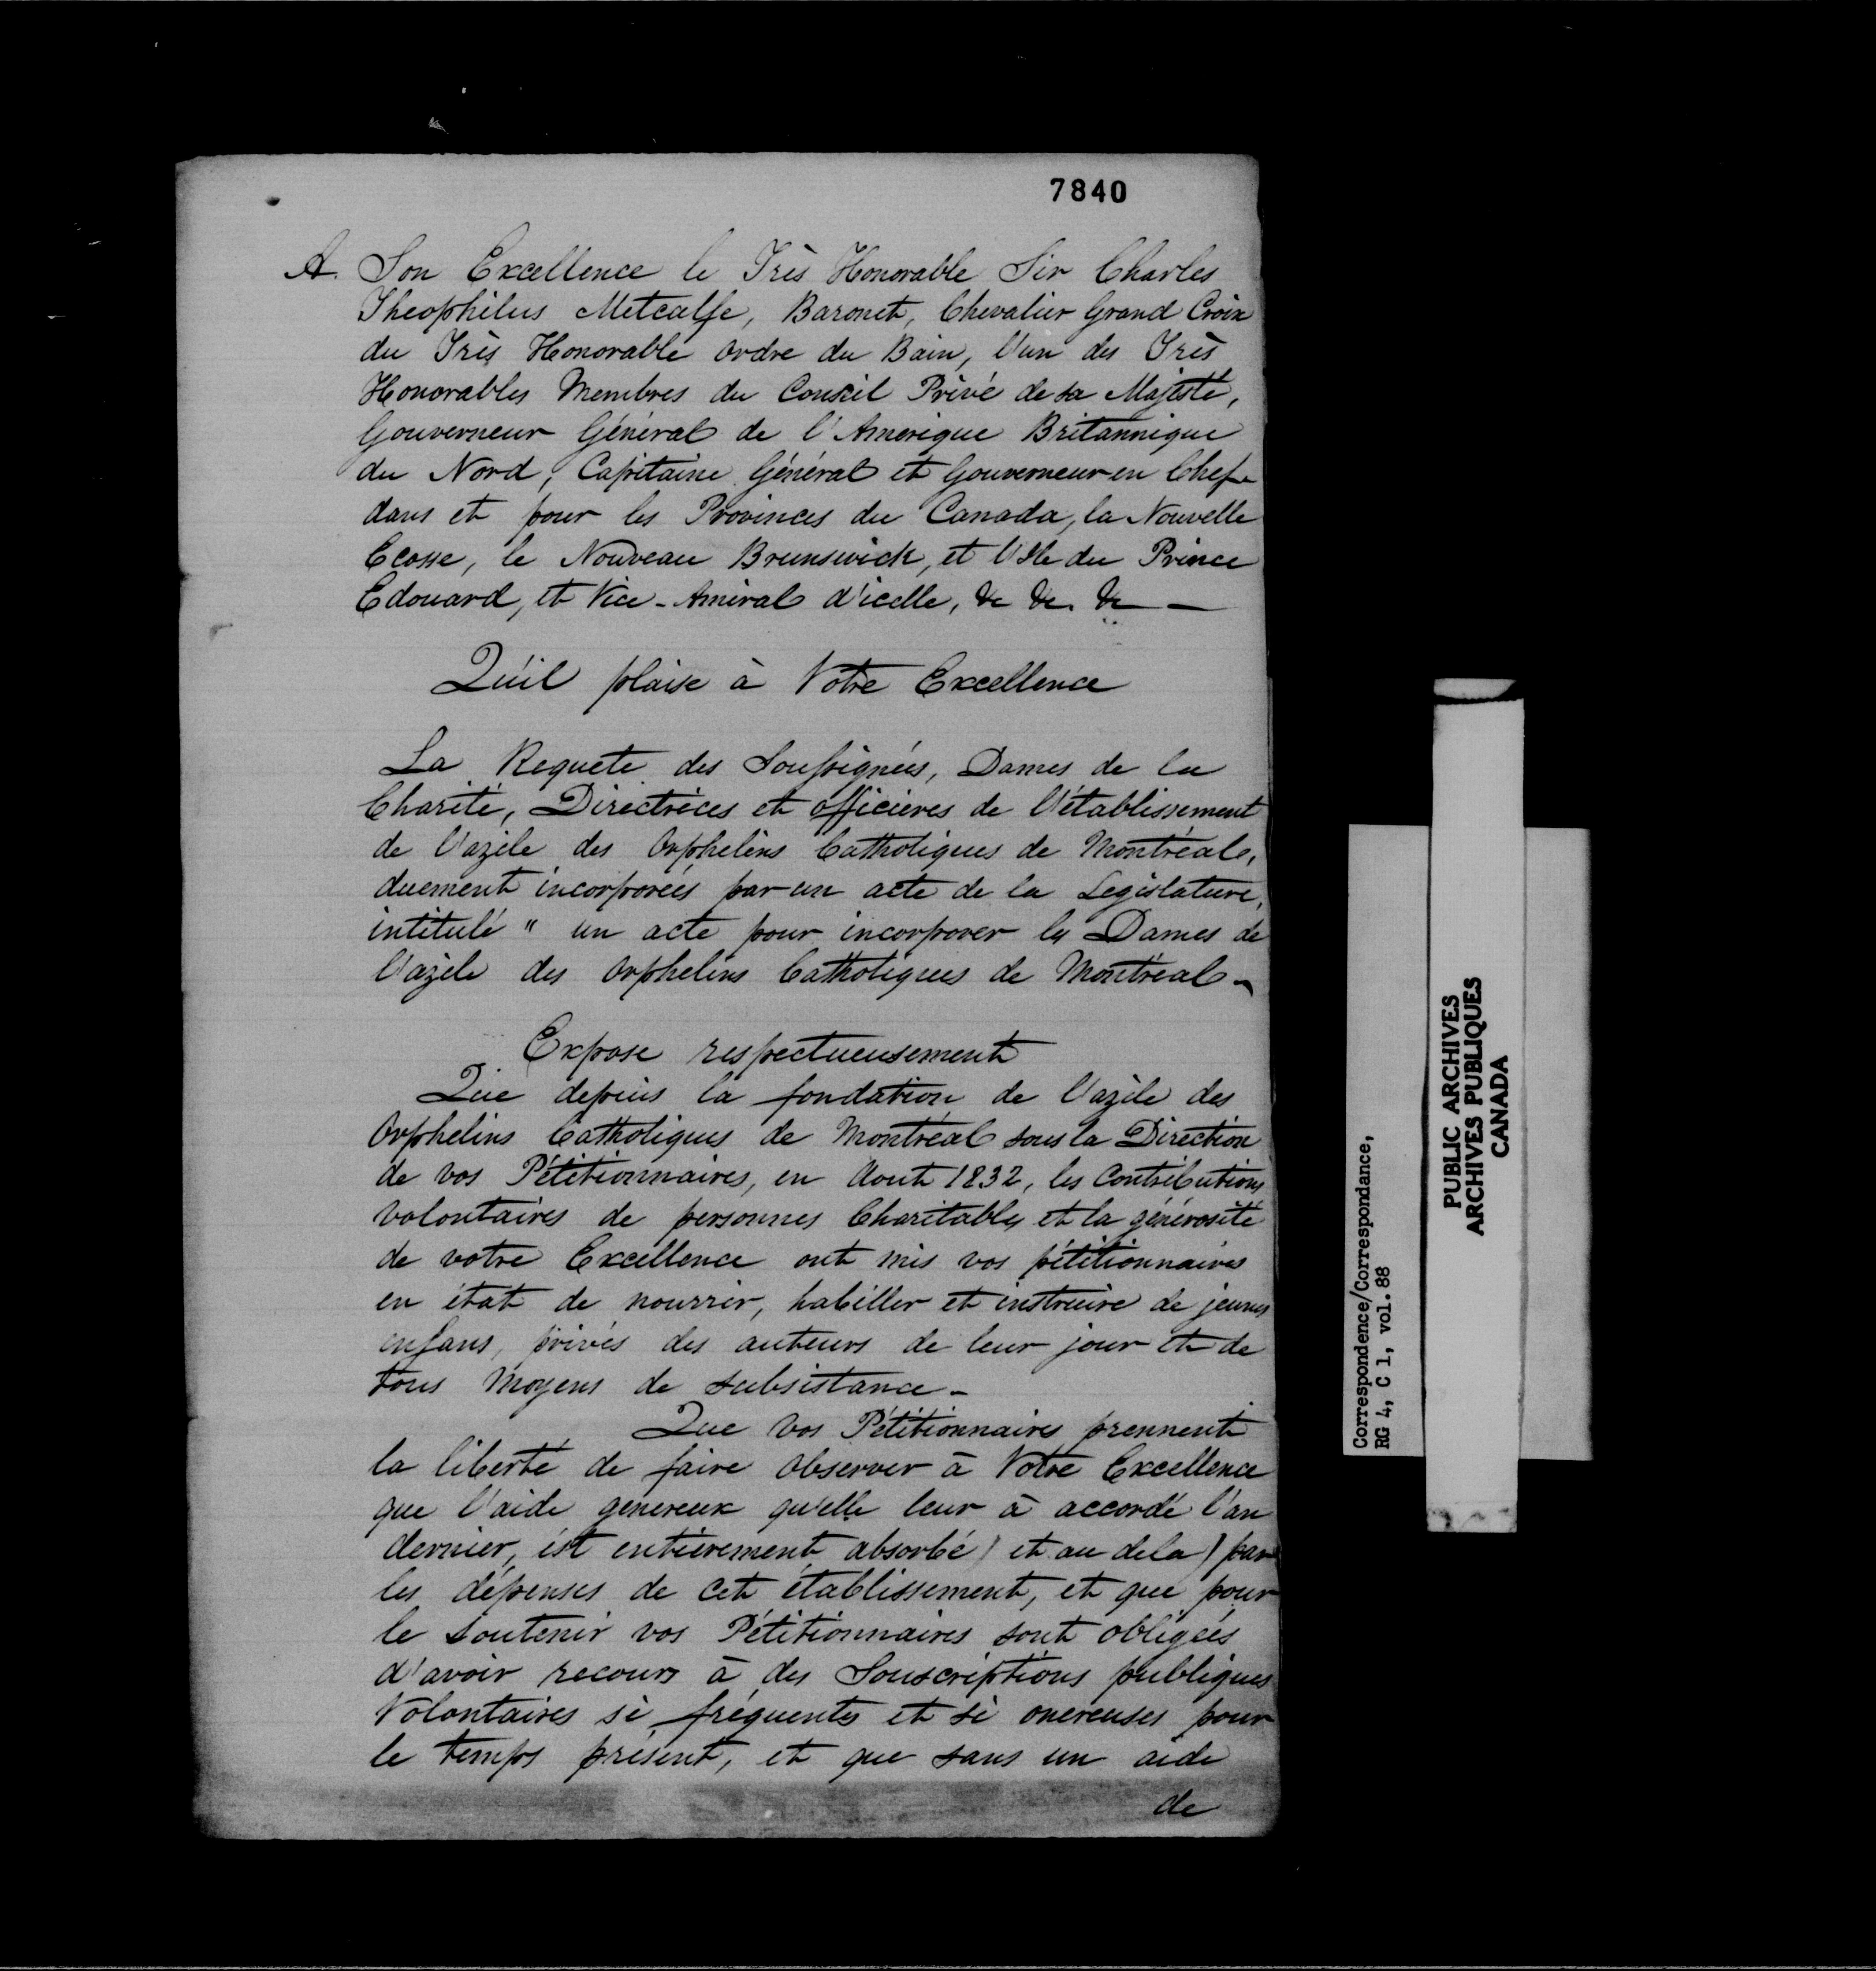 7840
A. Son Excellence le Très Honorable Sir Charles
Theophilus Metcalfe, Baronet, Chevalier Grand Croix
du Très Honorable ordre du Bain, l'un des Très
Honorables Membres du Conseil Privé de sa Majesté,
Gouverneur Général de l'Amerique Britannique
du Nord, Capitaine Général et Gouverneur en Chef
dans et pour les Provinces du Canada, la Nouvelle
Ecosse, le Nouveau Brunswick, et l'Ile du Prince
Edouard, et Vice-Amiral d'icelle, &c &c. &c —
Qu'il plaise à Votre Excellence
La Requete des Soussignées, Dames de la
Charité, Directrices et officières de l'établissement
de l'azile des Orphelins Catholiques de Montréal,
duement incorporées par un acte de la Legislature,
intitulé " un acte pour incorporer les Dames de
l'azile des Orphelins Catholiques de Montréal -
Expose respectueusement
Que depuis la fondation de l'azile des
Orphelins Catholiques de Montréal sous la Direction
de vos Pétitionnaires, en Aout 1832, les Contributions
volontaires de personnes Charitables et la générosité
de votre Excellence ont mis vos pétitionnaires
en état de nourrir, habiller et instruire de jeunes
enfans, privés des auteurs de leur jour et de
tous moyens de subsistance -
Que vos Pétitionnaires prennent
la liberté de faire observer à Votre Excellence
que l'aide genereux qu'elle leur à accordé l'an
dernier, est entièrement absorbé) et au dela) par
les dépenses de cet établissement, et que pour
le soutenir vos Pétitionnaires sont obligées
d'avoir recours à des Souscriptions publiques
Volontaires si fréquentes et si onereuses pour
le temps présent, et que sans un aide
de
Correspondence/Correspondance,
RG 4, C 1, vol. 88
PUBLIC ARCHIVES
ARCHIVES PUBLIQUES
CANADA